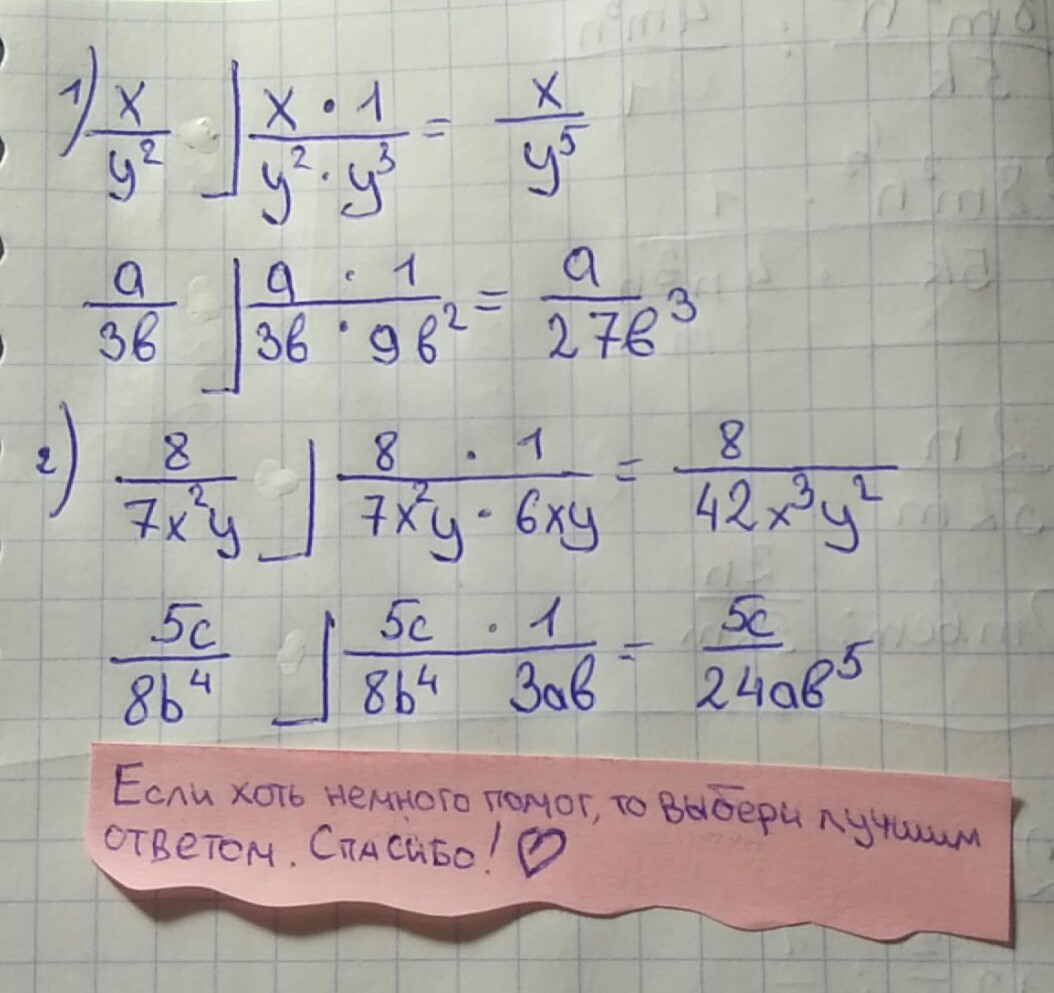 1) x/y² ⌋ x · 1/y² · y³ = x/y⁵
a/3в ⌋ a · 1/3в · 9в² = a/27в³
2) 8/7x²y ⌋ 8 · 1/7x²y · 6xy = 8/42x³y²
5c/8b⁴ ⌋ 5c · 1/8b⁴ 3ав = 5c/24ав⁵
Если хоть немного помог, то выбери лучшим
ответом. Спасибо! ♡